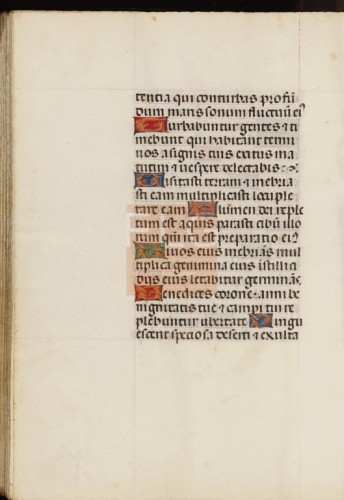 tentia qui conturbas profū
dum maris sonum fluctuū ei9
Turbabuntur gentes & ti
mebunt qui habitant termi
nos a signis tuis exitus ma
tutini & uespere delectabis
Uisitasti terram & inebria
sti eam multiplicasti locuple
tare eam Flumen dei reple
tum est aquis parasti cibū illo
rum qm̄ ita est preparatio ei9
Riuos eius inebrians mul
tiplica genimina eius i stillici
dijs eius letabitur germinās
Benedices corone anni be
nignitatis tue & campi tui re
plebuntur ubertate Pingu
escent speciosa deserti & exulta